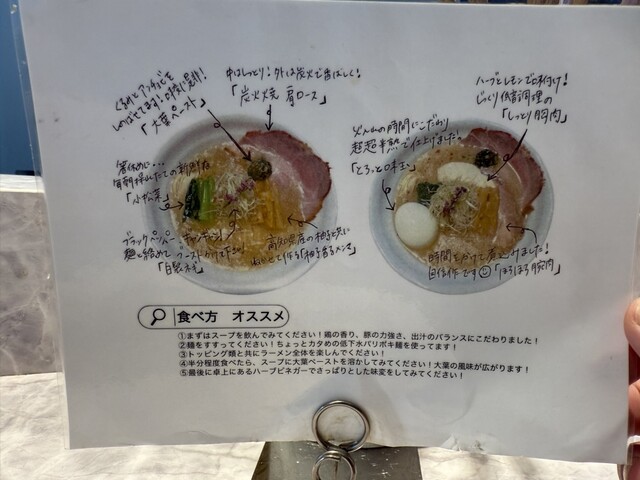 中はしっとり!外は炭火で香ばしく!
「炭火焼 肩ロース」
くるみとアンチョビを
しのばせてます!
「大葉ペースト」
箸休めに…
「小松菜」
ブラックペッパー
「自製ネギ」
高知県産の柚子と共に
「柚子香るメンマ」
ハーブとレモンで味付け!
じっくり低音調理の
「しっとり胸肉」
火入れの時間にこだわり
超超半熟で仕上げました。
「とろっと味玉」
時間をかけて煮込みました!
自信作です
「ほろほろ豚肉」
食べ方 オススメ
①まずはスープを飲んでみてください!鶏の香り、豚の力強さ、出汁のバランスにこだわりました!
②麺をすすってください!ちょっとカタめの低下水パリポキ麺を使ってます!
③トッピング類と共にラーメン全体を楽しんでください!
④半分程度食べたら、スープに大葉ペーストを溶かしてみてください!大葉の風味が広がります!
⑤最後に卓上にあるハーブビネガーでさっぱりとした味変をしてみてください!